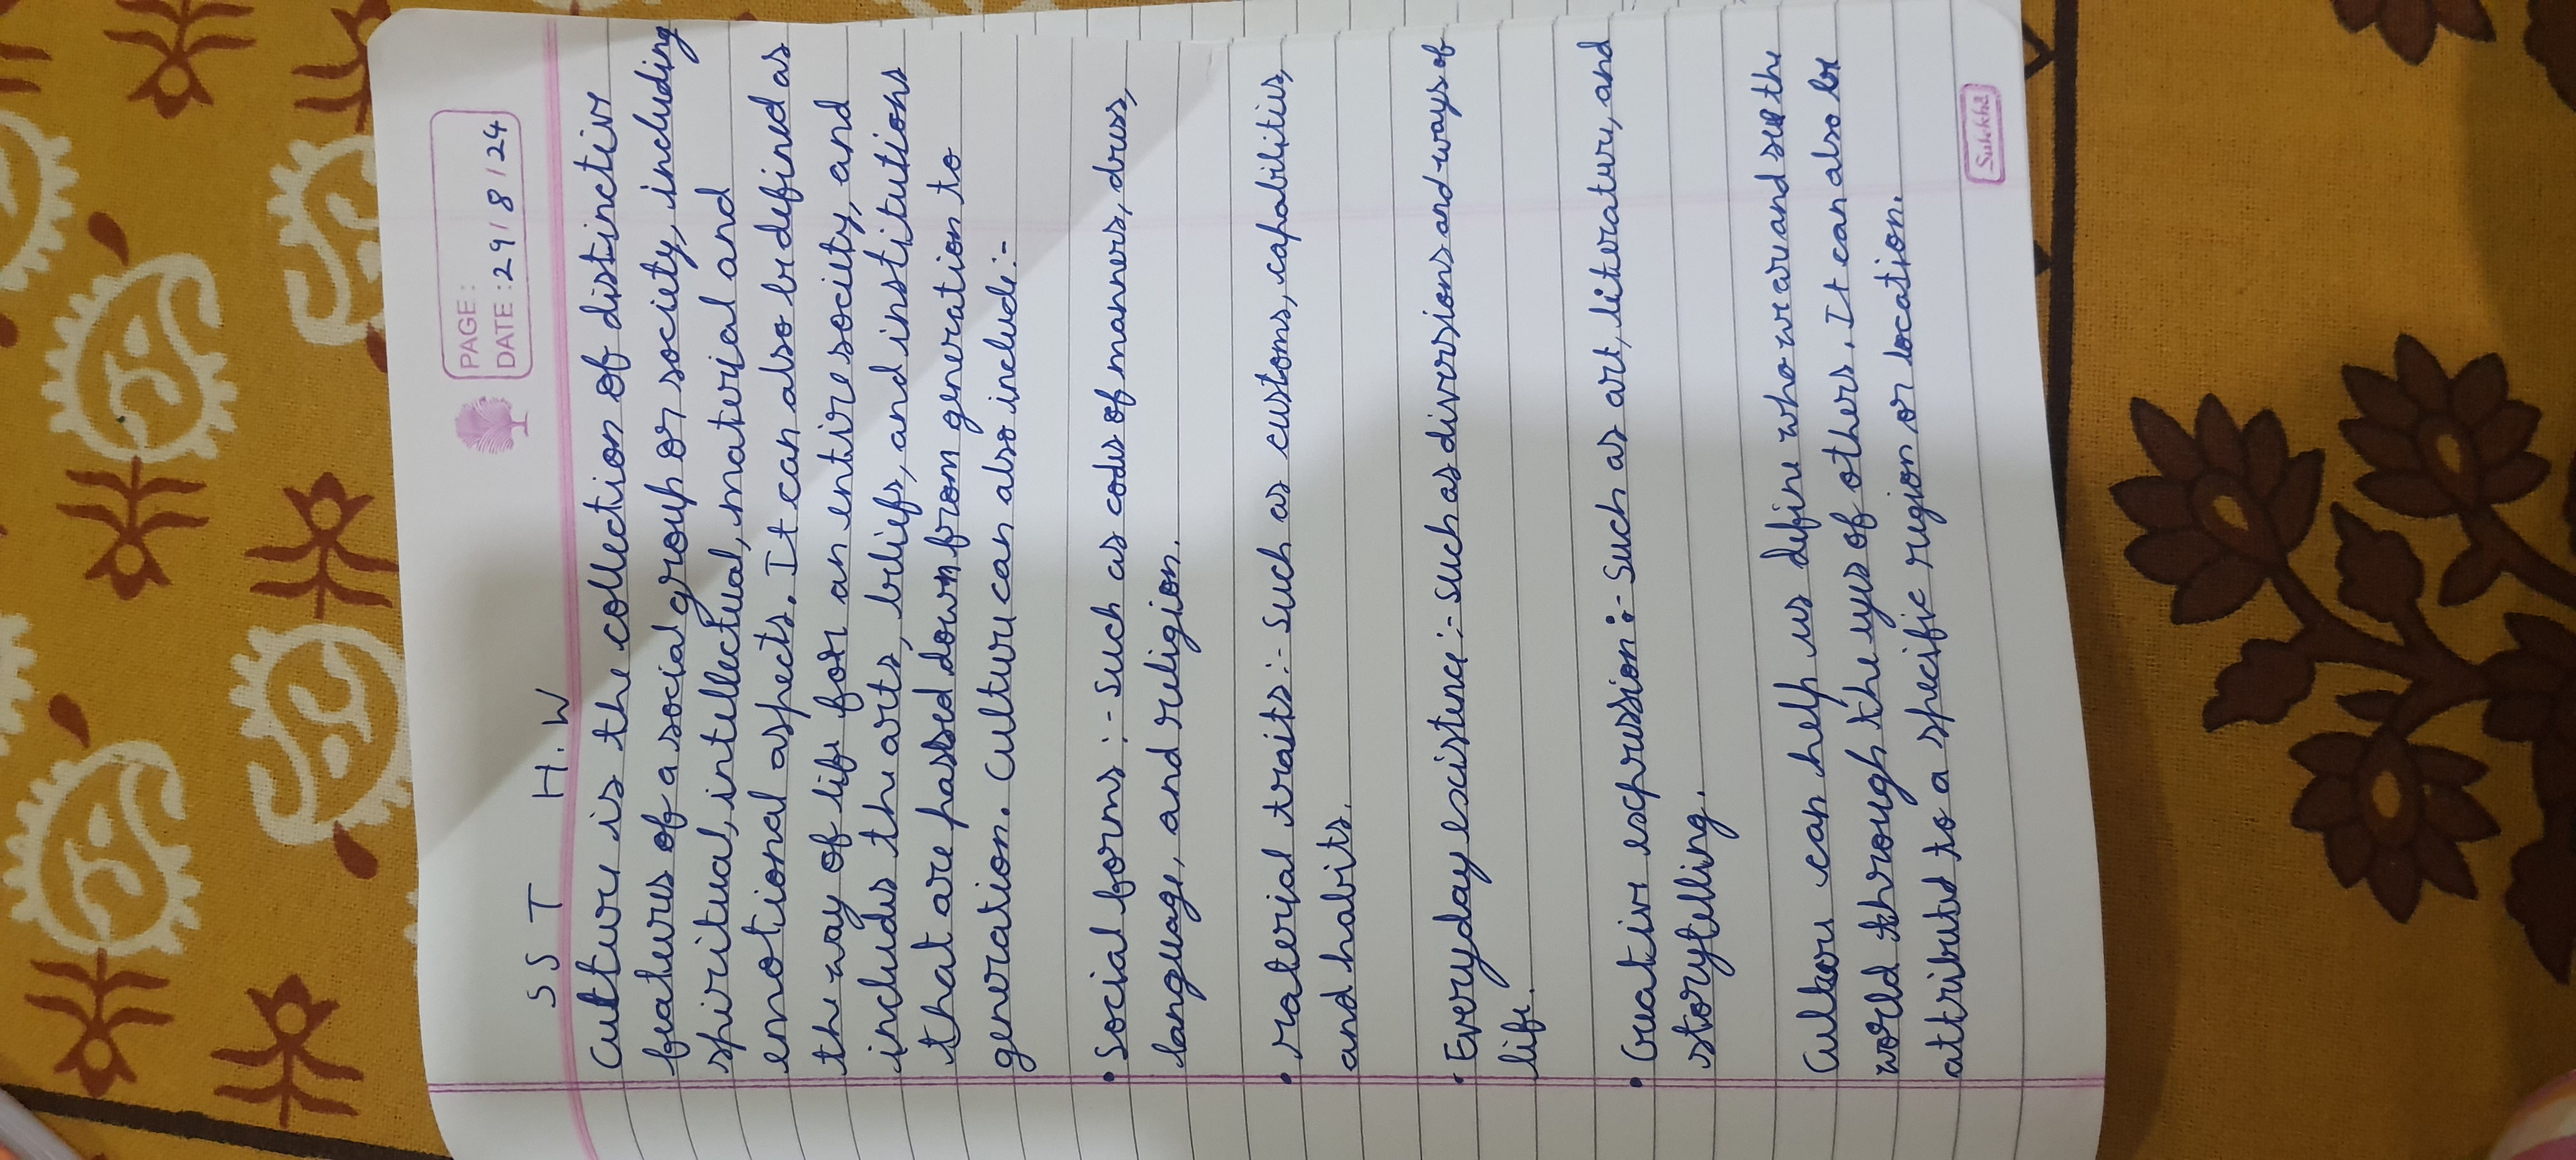 PAGE :
DATE : 29 / 8 / 24
SST H.W
Culture is the collection of distinctive
features of a social group or society, including
spiritual, intellectual, material and
emotional aspects. It can also be defined as
the way of life for an entire society, and
includes the arts, beliefs, and institutions
that are passed down from generation to
generation. Culture can also include:-
• Social forms :- such as codes of manners, dress,
language, and religion.
• material traits :- such as customs, capabilities,
and habits.
• Everyday existence :- such as diversions and ways of
life.
• Creative expression :- such as art, literature, and
storytelling.
Culture can help us define who we are and see the
world through the eyes of others. It can also be
attributed to a specific region or location.
Sulekha